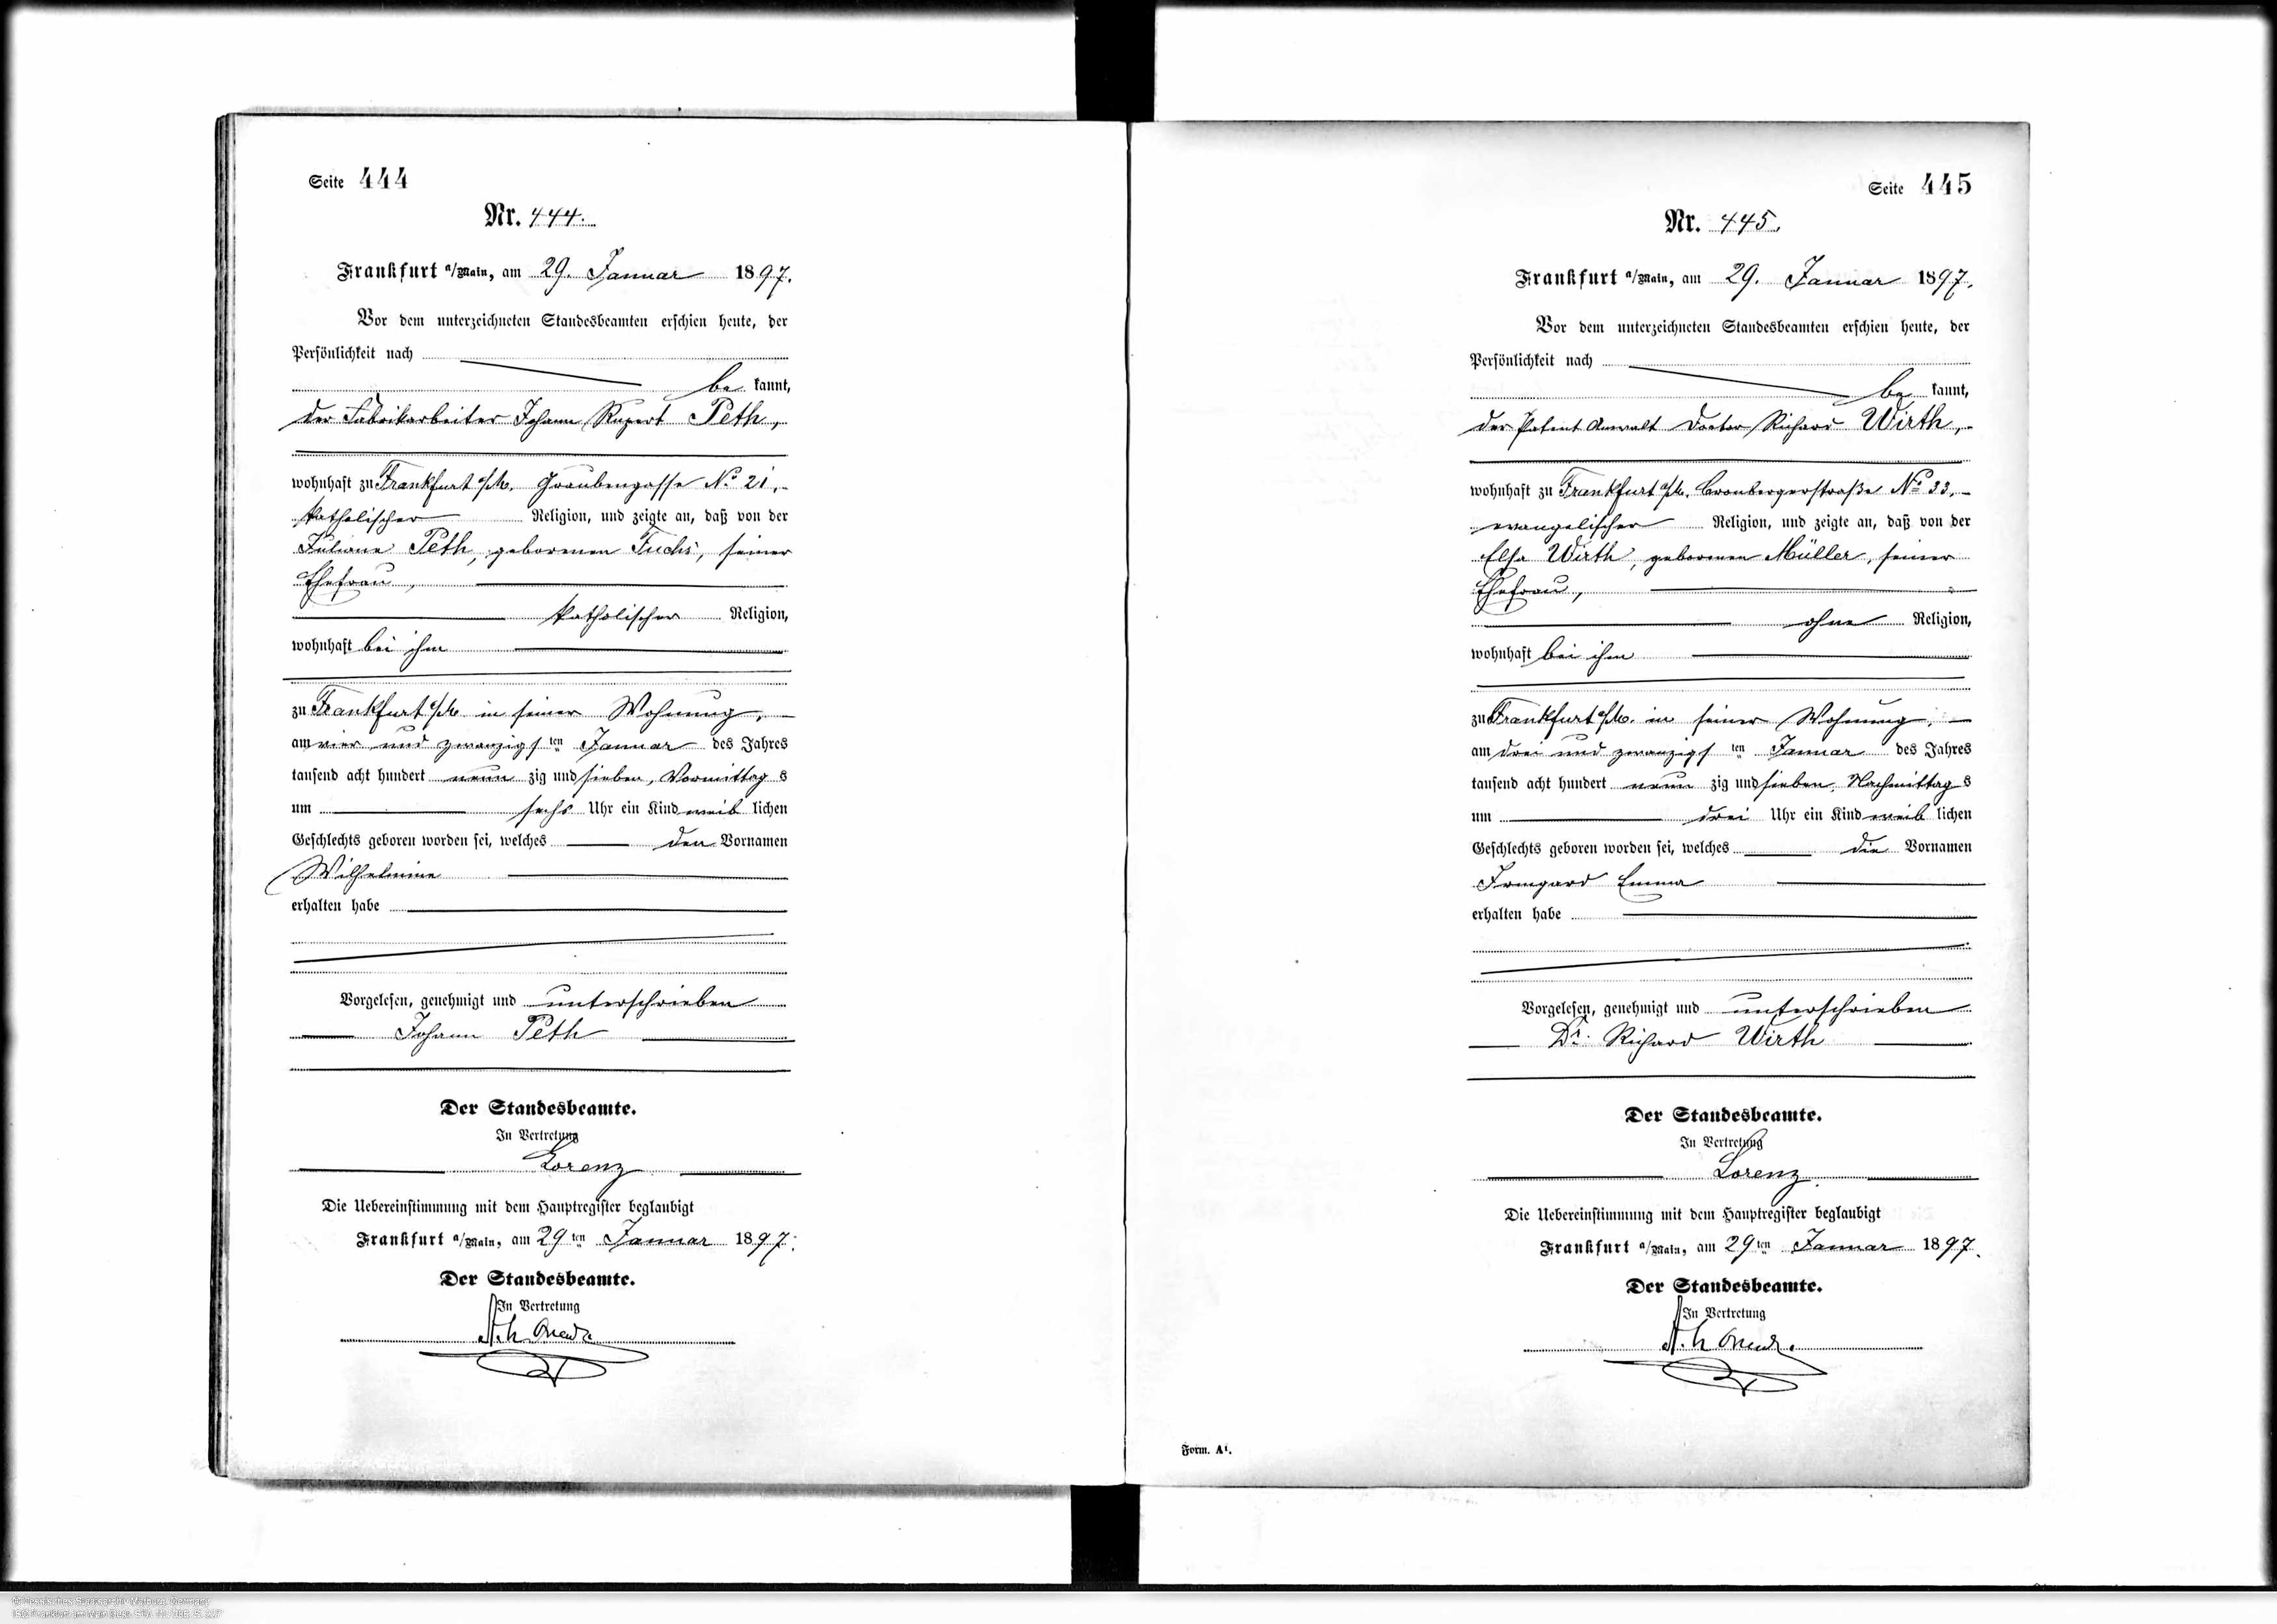 Seite 444
Nr. 444.
Frankfurt a/Main, am 29. Januar 1897.
Vor dem unterzeichneten Standesbeamten erschien heute, der
Persönlichkeit nach
be kannt,
der Fabrikarbeiter Johann Rupert Peth,
wohnhaft zu Frankfurt a/M. Graubengasse No 21,
katholischer Religion, und zeigte an, daß von der
Juliane Peth, geborenen Fuchs, seiner
Ehefrau,
katholischer Religion,
wohnhaft bei ihm
zu Frankfurt a/M. in seiner Wohnung,
am vier und zwanzigs ten Januar des Jahres
tausend acht hundert neun zig und sieben, Vormittag s
um sechs Uhr ein Kind weib lichen
Geschlechts geboren worden sei, welches den Vornamen
Wilhelmine
erhalten habe
Vorgelesen, genehmigt und unterschrieben
Johann Peth
Der Standesbeamte.
In Vertretung
Lorenz
Die Uebereinstimmung mit dem Hauptregister beglaubigt
Frankfurt a/Main, am 29 ten Januar 1897.
Der Standesbeamte.
In Vertretung
Seite 445
Nr. 445.
Frankfurt a/Main, am 29. Januar 1897.
Vor dem unterzeichneten Standesbeamten erschien heute, der
Persönlichkeit nach
be kannt,
der Patent Anwalt Doctor Richard Wirth,
wohnhaft zu Frankfurt a/M. Cronbergerstraße No 33,
evangelischer Religion, und zeigte an, daß von der
Elsa Wirth, geborenen Müller, seiner
Ehefrau,
ohne Religion,
wohnhaft bei ihm
zu Frankfurt a/M. in seiner Wohnung,
am drei und zwanzigs ten Januar des Jahres
tausend acht hundert neun zig und sieben, Nachmittag s
um drei Uhr ein Kind weib lichen
Geschlechts geboren worden sei, welches die Vornamen
Irmgard Emma
erhalten habe
Vorgelesen, genehmigt und unterschrieben
Dr. Richard Wirth
Der Standesbeamte.
In Vertretung
Lorenz
Die Uebereinstimmung mit dem Hauptregister beglaubigt
Frankfurt a/Main, am 29 ten Januar 1897.
Der Standesbeamte.
In Vertretung
Form. A1.